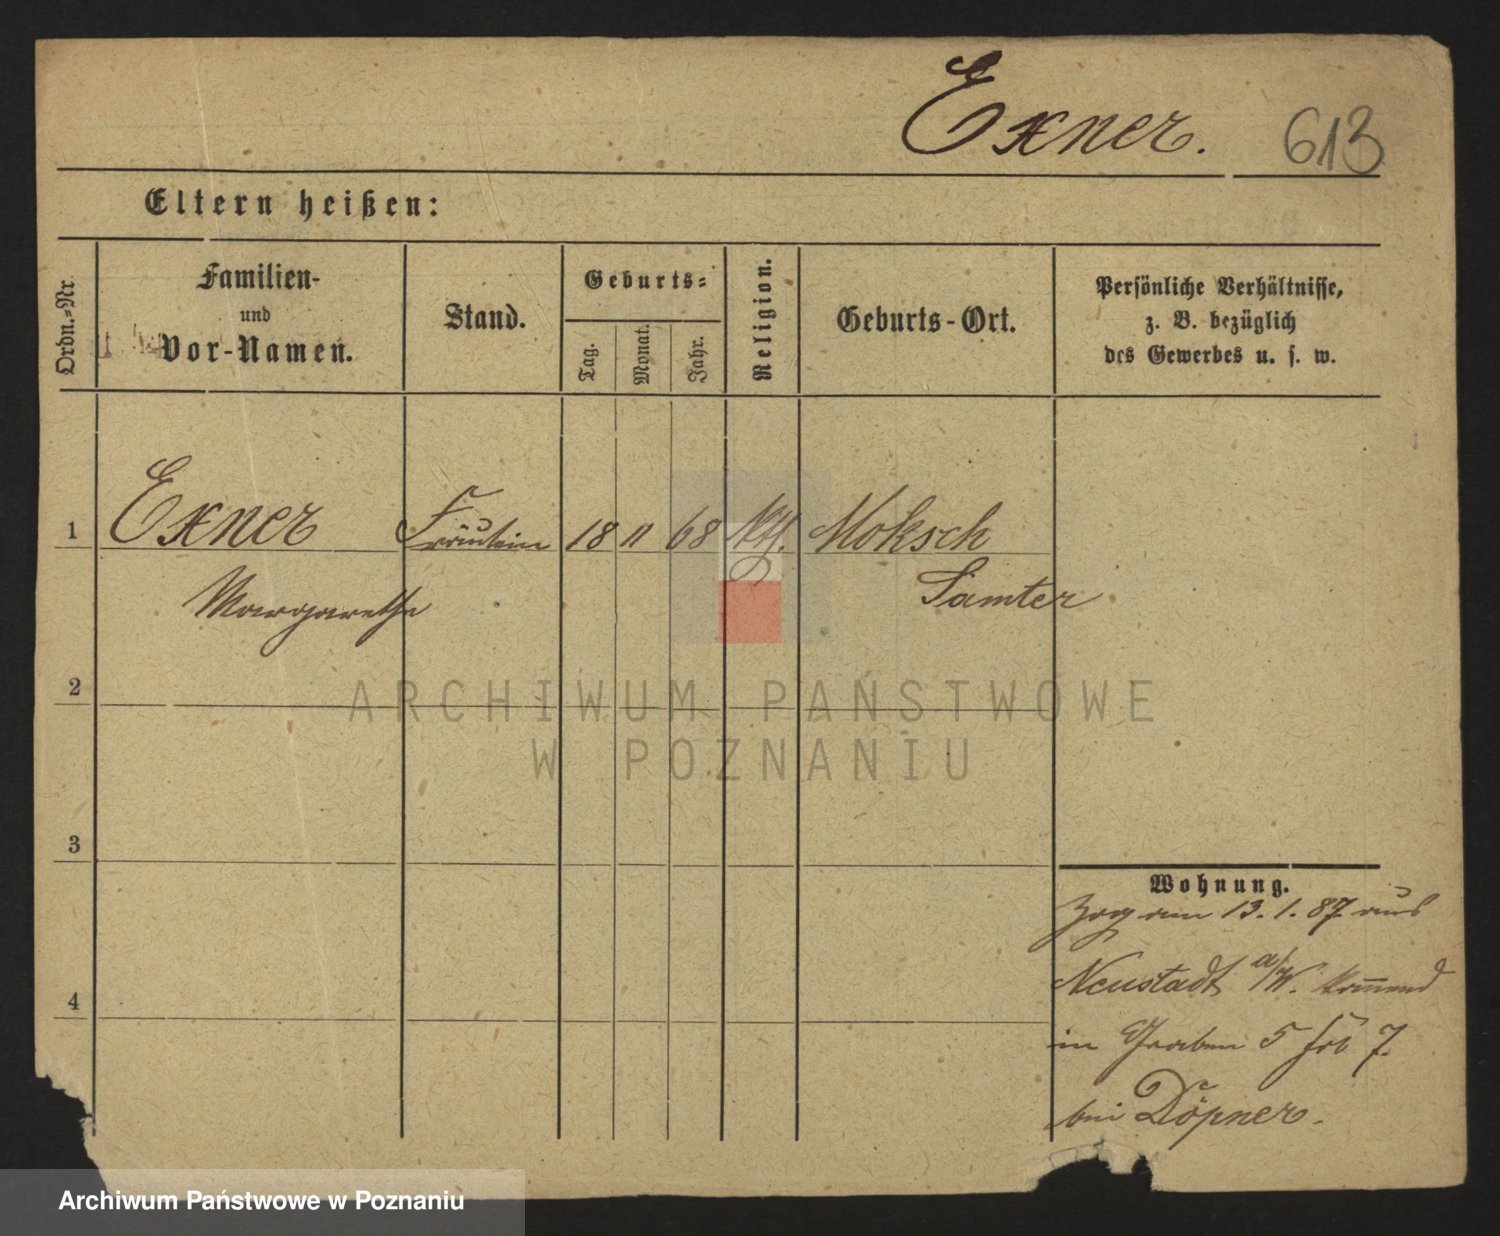 Exner. 613
Eltern heißen:
Ordn.-Nr
Familien-
und
Vor-Namen.
Stand.
Geburts-
Tag.
Monat.
Jahr.
Religion.
Geburts-Ort.
Persönliche Verhältnisse,
z. B. bezüglich
des Gewerbes u. s. w.
1 Exner Fräulein 18 11 68 kth. Moksch
Margarethe Samter
2
3
4
Wohnung.
Zog am 13. 1. 87. aus
Neustadt a/W. kom̅end
in Graben 5 7.
bei Döpner.
ARCHIWUM PAŃSTWOWE
W POZNANIU
Archiwum Państwowe w Poznaniu